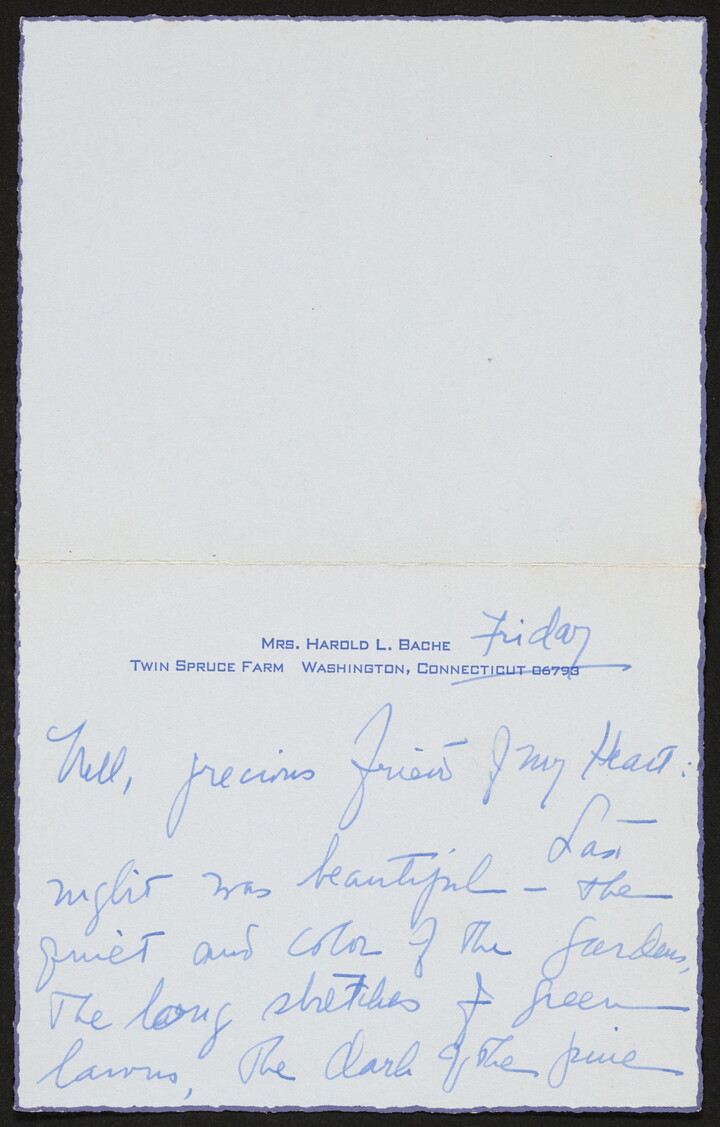 Mrs. Harold L. Bache
Friday
Twin Spruce Farm Washington, Connecticut 06793
Nell, precious friend of my Heart:
Last
night was beautiful – the
quiet and color of the gardens,
the long stretches of green
lawns, the dark of the pine